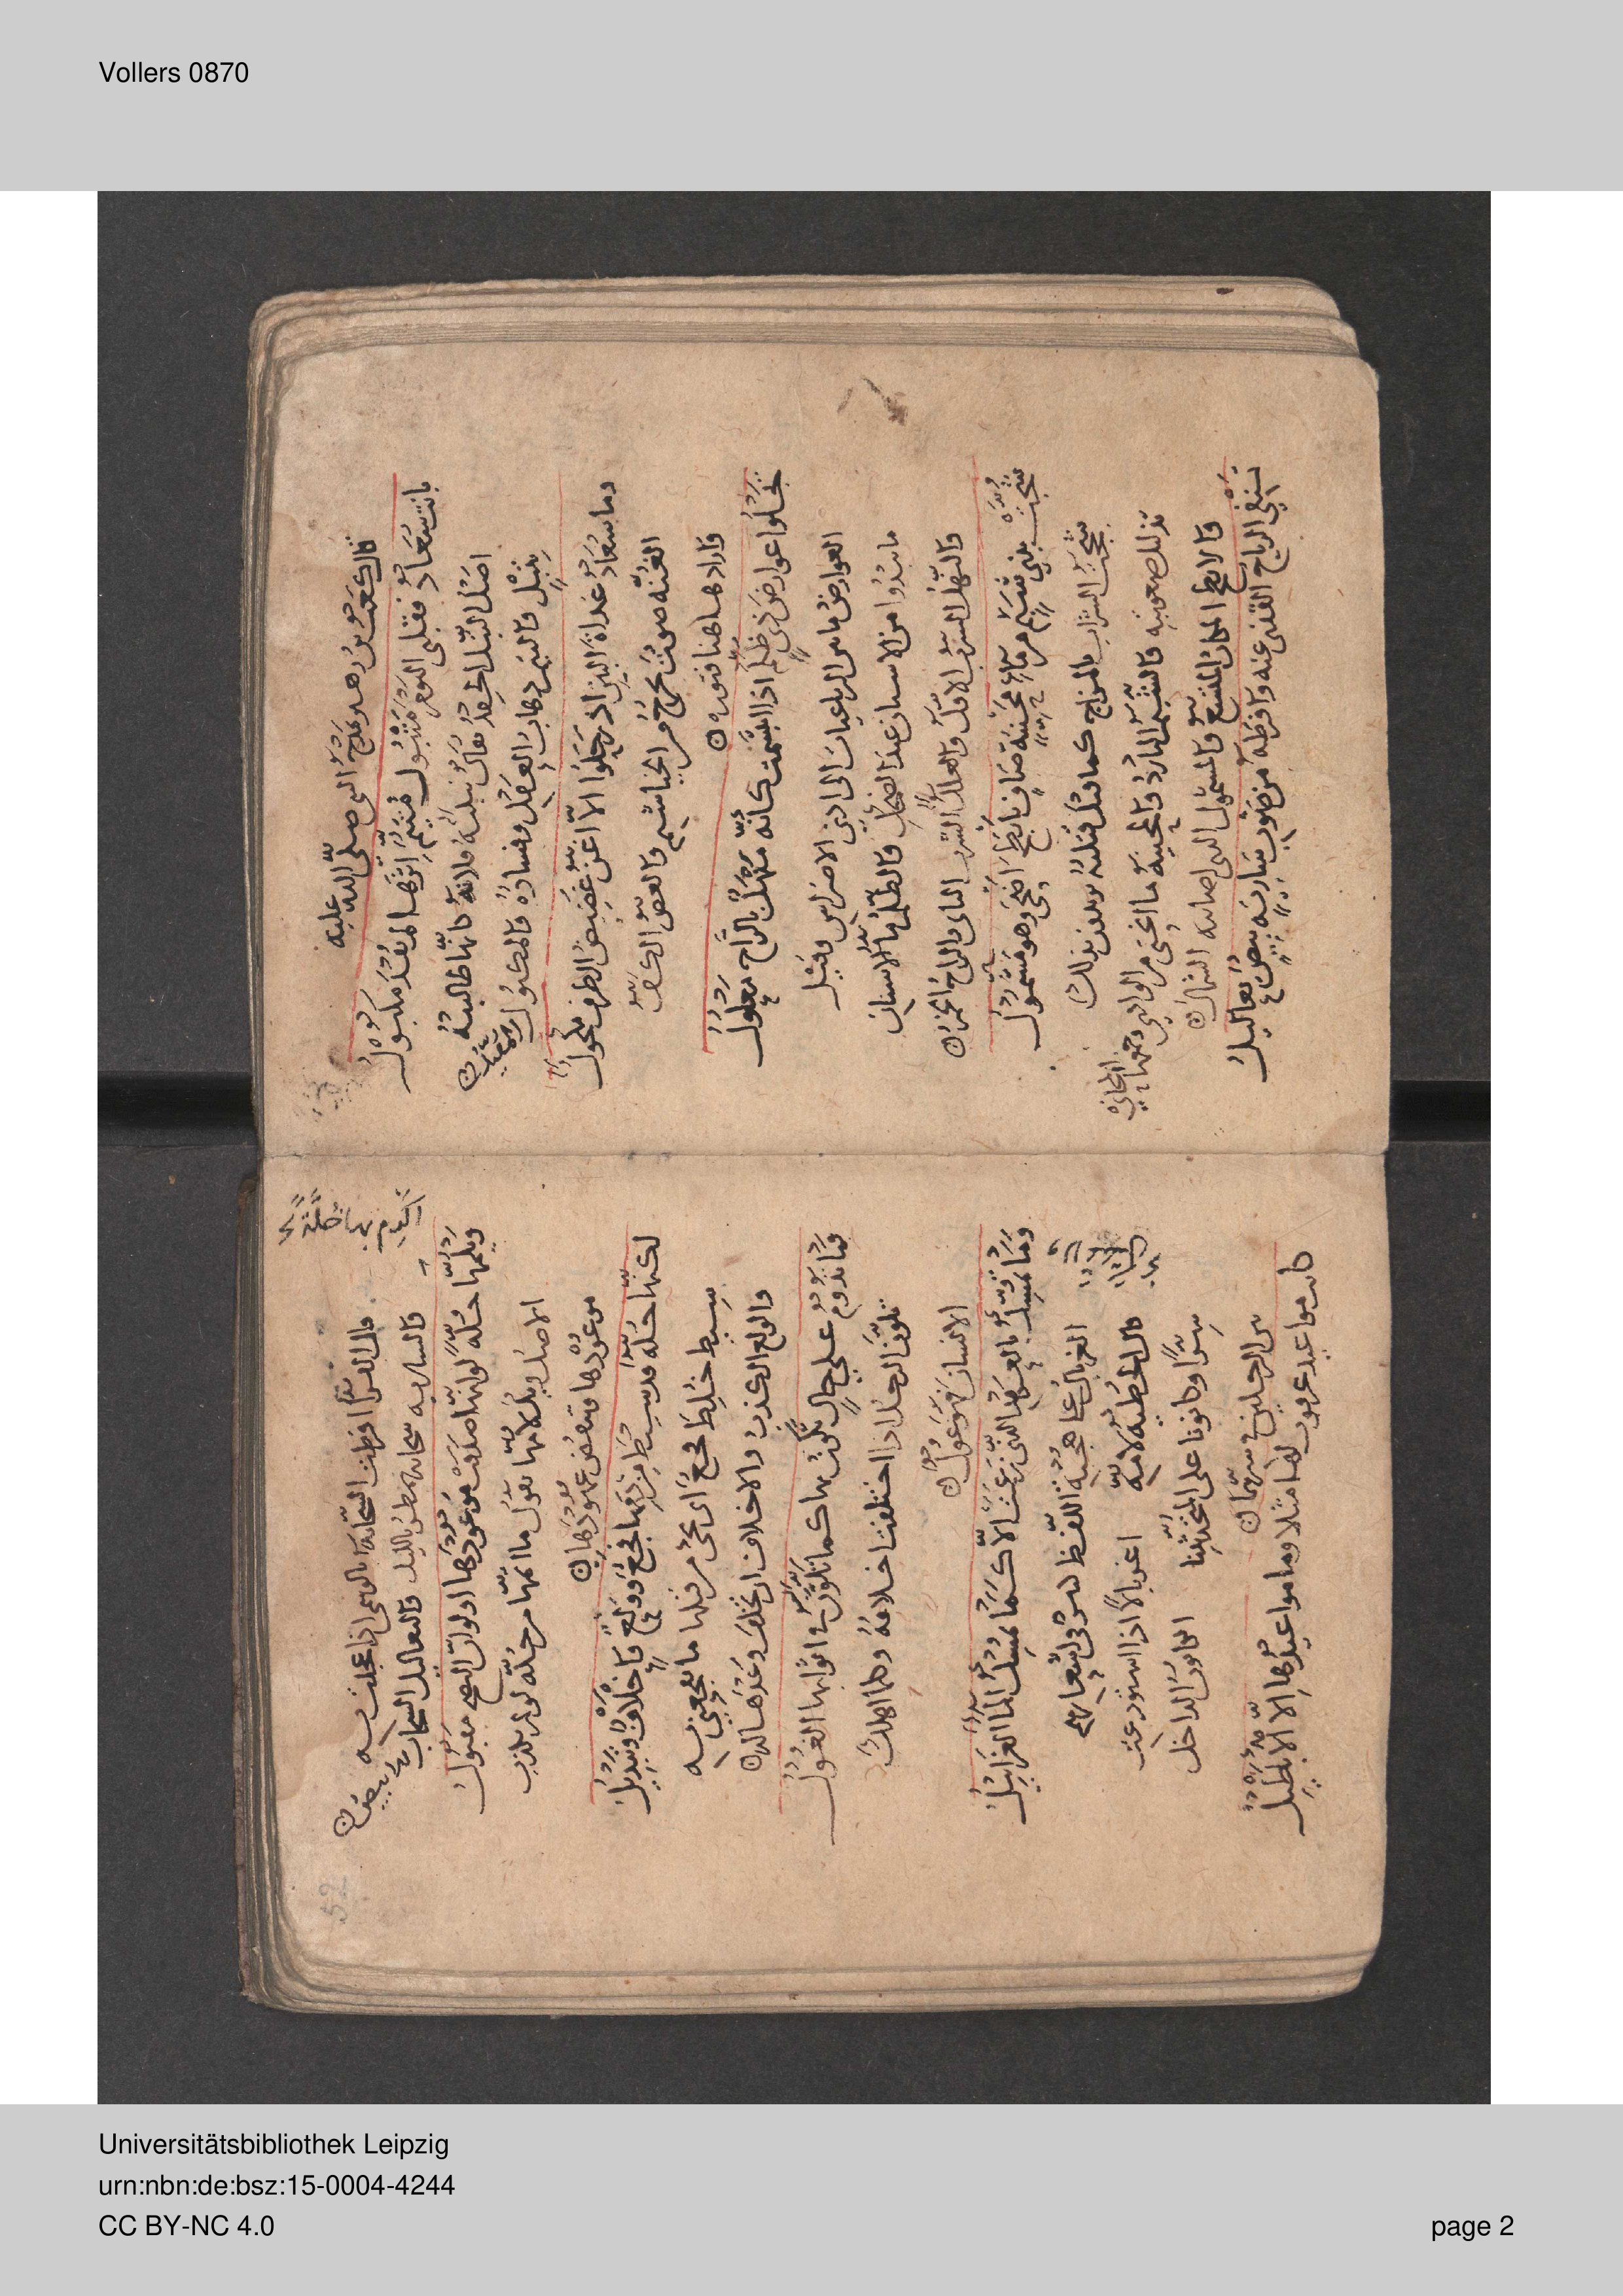 Vollers 0870
قال كعب بن زهير يمدح النبي صلى الله عليه
بانت سعاد فقلبي اليوم متبول متيم اثرها لم يفد مكبول
اصل التبل الحقد يقال تبلته فلانة كانها طالبته
بتبل والتيم ذهاب العقل وفساده والمكبول المقيد
وما سعاد غداة البين اذ رحلوا الا اغن غضيض الطرف مكحول
الغنه صوت يخرج من الخياشيم والغض الكف
واراد هاهنا فتوره
تجلوا عوارض ذي ظلم اذا ابتسمت كانه منهل بالراح معلول
العوارض ما بين الرباعيات الى ادنى الاضراس وقيل
ما يبدوا من الاسنان عند الضحك والظلم ماء الاسنان
والنهل الشرب الاول والعلل الشرب الثاني والراح الخمر
شجت بذي شبم من ماء محنية صاف بابطح اضحى وهو مشمول
شججت الشراب بالمزاج كما قيل قتلته يريدون بذلك
بذلك صعوبته والشبم البارد والمحنية ما انحنى من الوادي وجمعها المحاني
والابطح المكان المتسع والمشمول الذي اصابه الشمال
تنفي الرياح القذى عنه وافرطه من صوب سارية بيض يعاليل
قال الفرا افرطت السحابة بالوسمي اذا عجلت به
والساريه سحابه تمطر بالليل واليعاليل السحاب بيض
ويلمها خلة لو انها صدقت موعودها او لو ان النصح مقبول
الاصل ويل لامها يقول ما اتمها من خلة لو لم يكذب
موعودها وتنقض عهودها
لكنها خلة قد سيط من دمها فجع وولع واخلاف وتبديل
سيط خلط فجع اي تجئ من قبلها ما يفجعني به
والولع الكذب والاخلاف ان تخلف وعدها
فما تدوم على حال تكون بها كما تلون في اثوابها الغول
تلون الرجل اذا اختلفت اخلاقه وكلما اهلك
الانسان فهو غول
وما تمسك بالعهد الذي زعمت الا كما تمسك الماء الغرابيل
الغربال اللفظ
قال الحطيه لامه اغربالا اذا استودعت
سرا وكانونا على المتحدثينا الكانون الداخل
بين الرجلين
كانت مواعيد عرقوب لها مثلا وما مواعيدها الا الاباطيل
52
Universitätsbibliothek Leipzig
urn:nbn:de:bsz:15-0004-4244
CC BY-NC 4.0
page 2